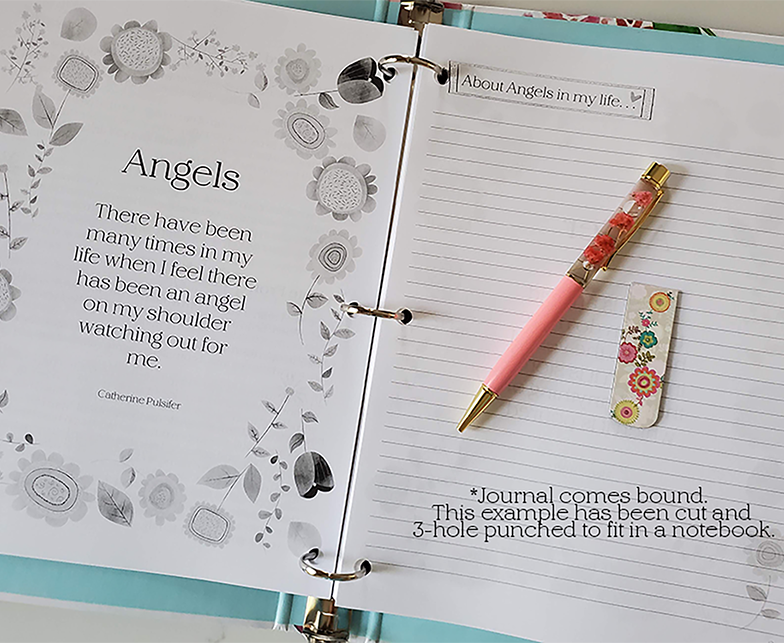 Angels
There have been
many times in my
life when I feel there
has been an angel
on my shoulder
watching out for
me.
Catherine Pulsifer
About Angels in my life. . .
*Journal comes bound.
This example has been cut and
3-hole punched to fit in a notebook.